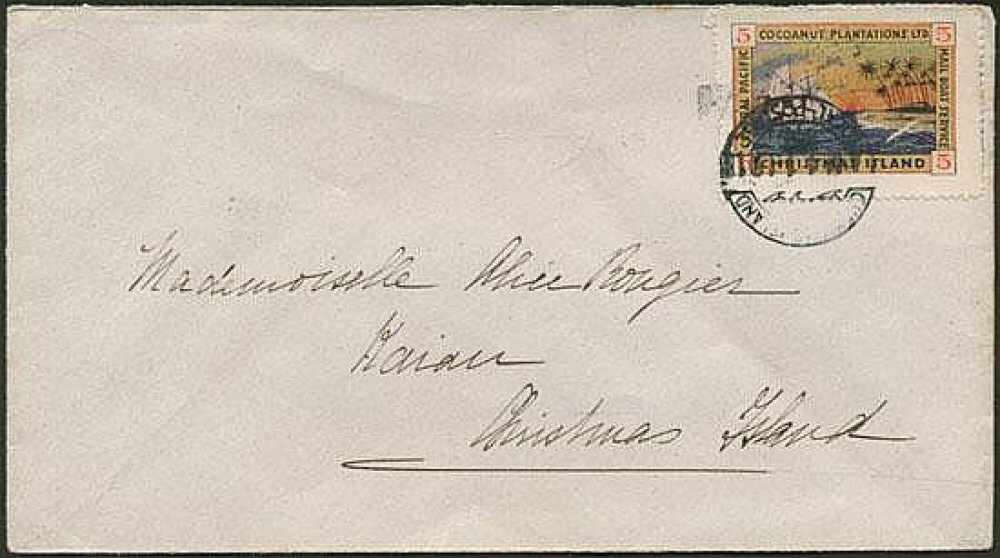 5 COCOANUT PLANTATIONS LTD 5
CENTRAL PACIFIC
MAIL BOAT SERVICE
CHRISTMAS ISLAND 5
Mademoiselle Alice Rougier
Christmas Island